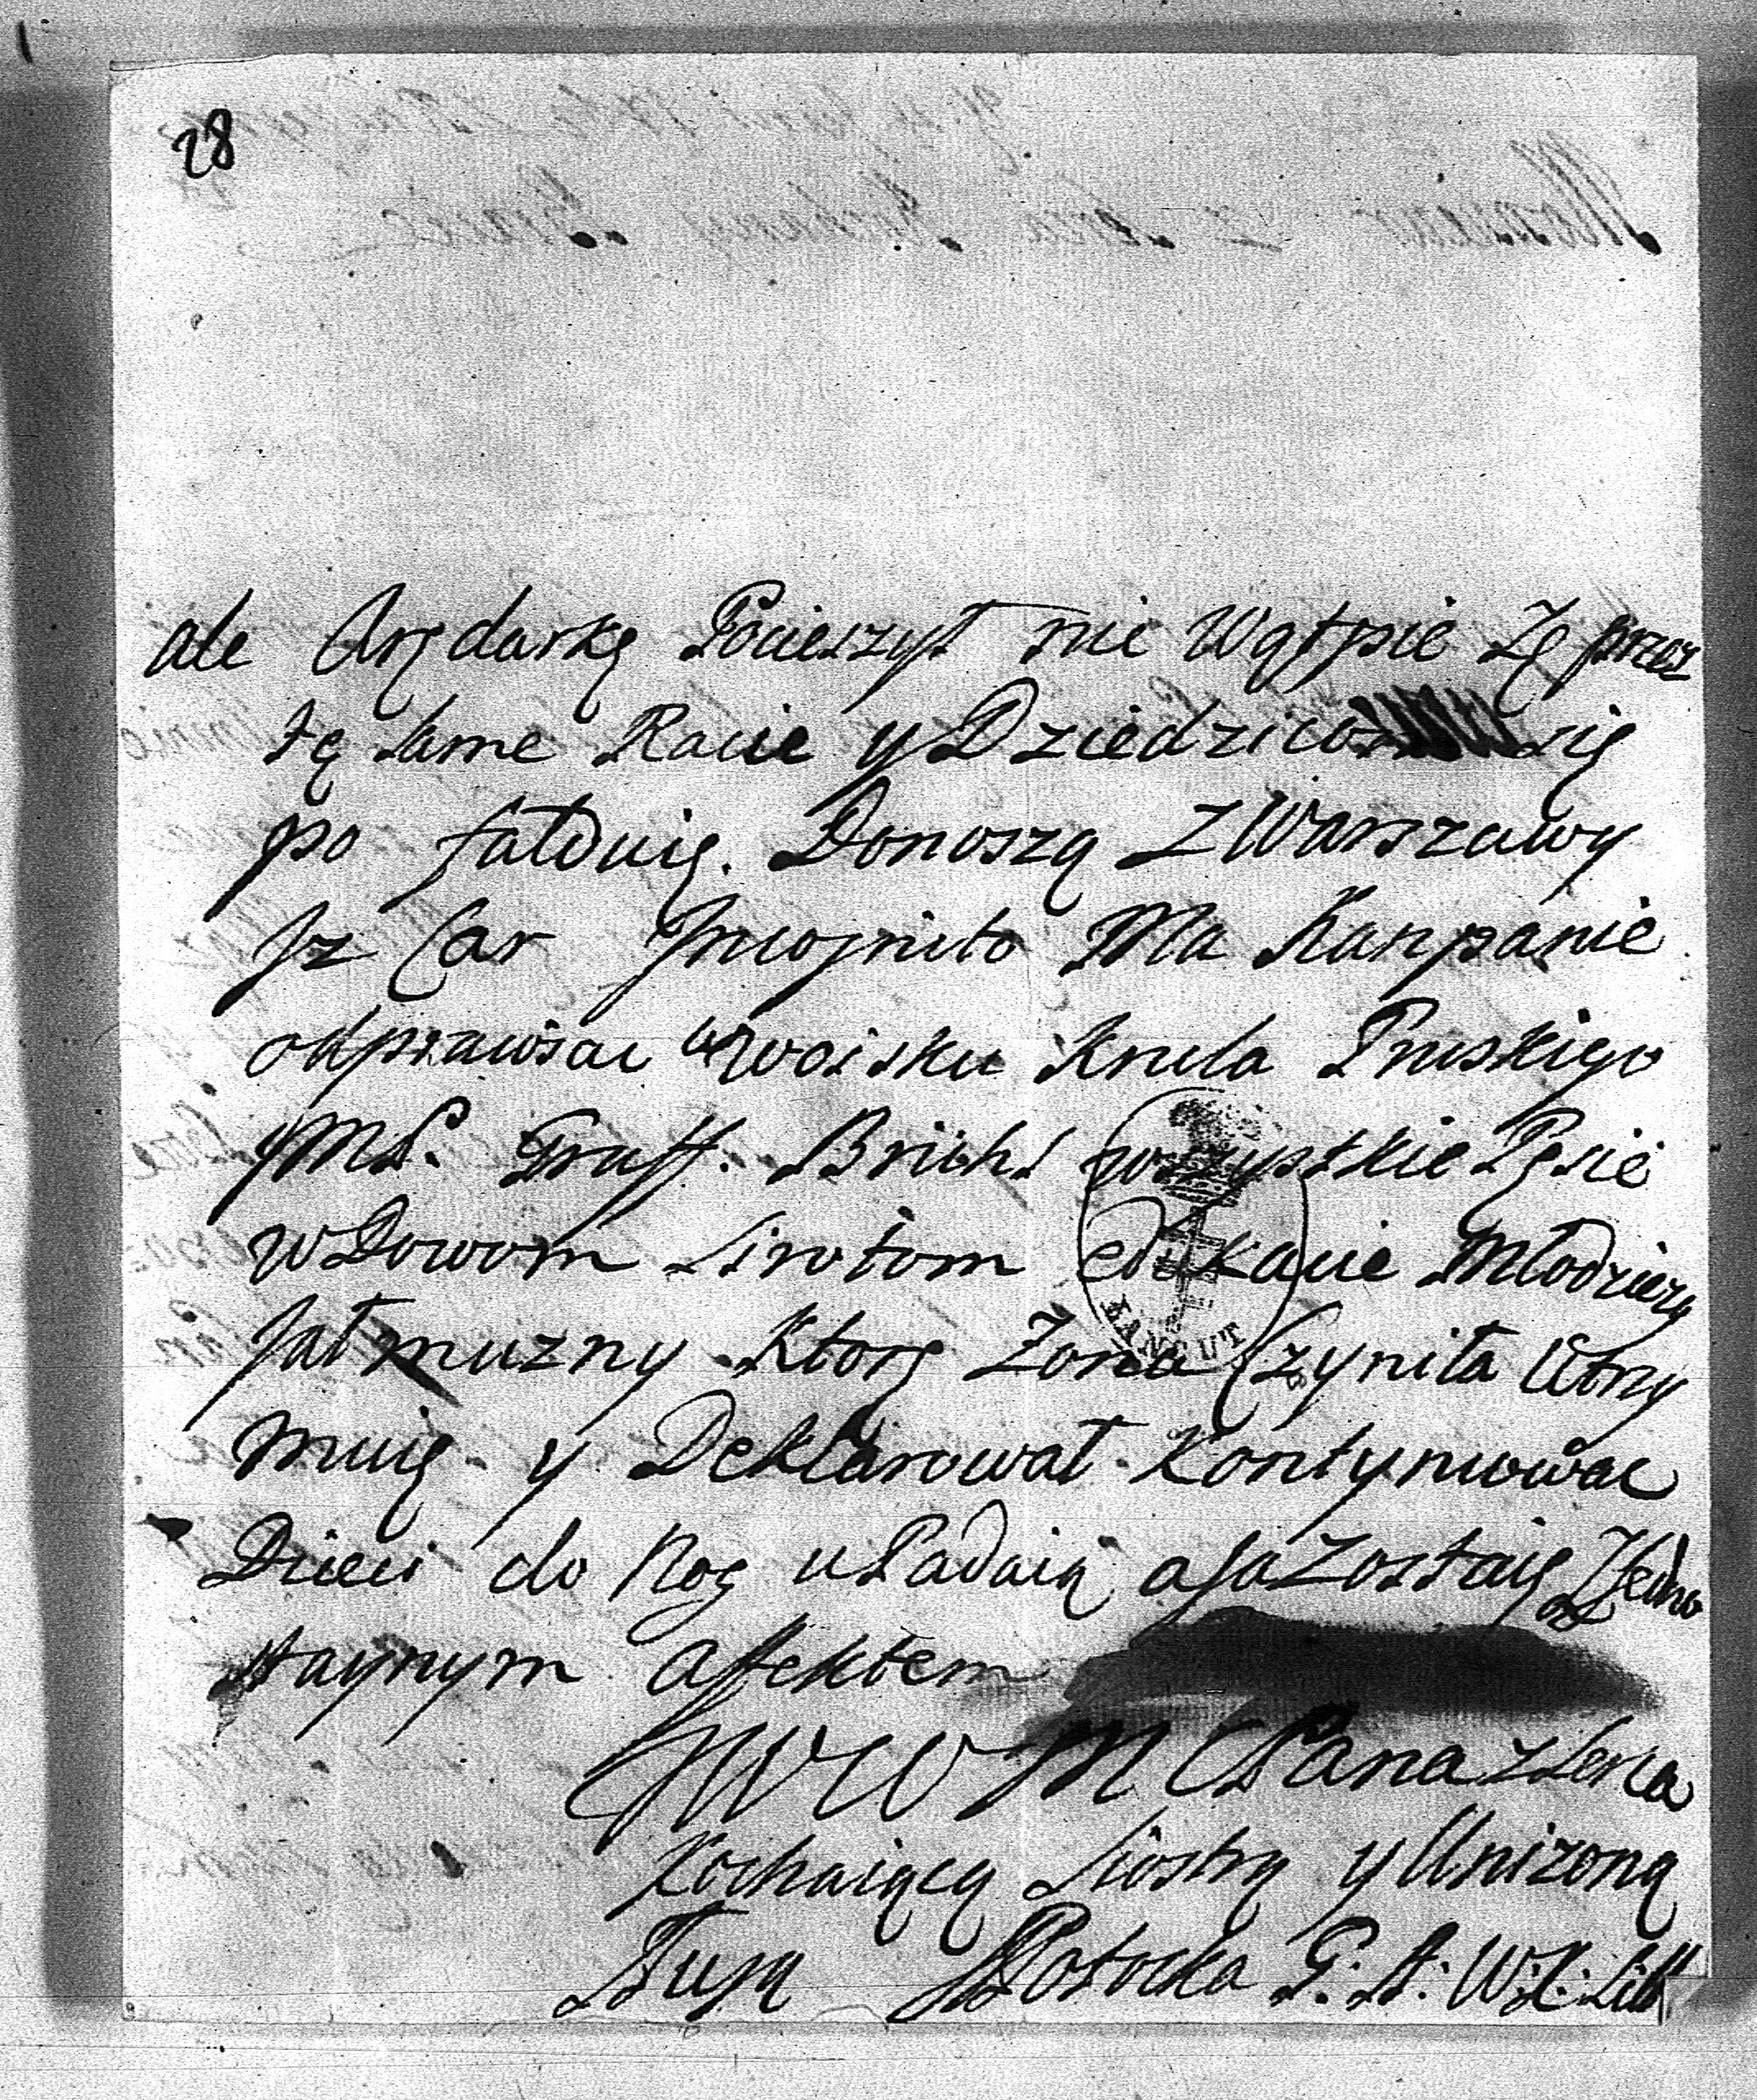 28
ale Arędarkę Pocieszył nie Wątpie Zę przez
tę same Racie y Dziedzicow się
po fatduię. Donoszą Z Warszawy
Jz Car Jncognito Ma Kanpanie
odprawiac w Woisku Krula Pruskiego
JMP. Graff. Brichl wszystkie Pęsie
wDowom Sirotom edukacie Młodziezy
Jałmuzny Ktorę Zona Czyniła Utrzy
muię y Deklarował Kontynuowac
Dzieci do Nog uPadaią a Ja Zostaię Z Jedno
staynym afektem
JWWM Pana z Serca
Kochaiącą Siostrą y Unizoną
Sługą Potocka P. A. W. X. Litt
ŁAŃCUT